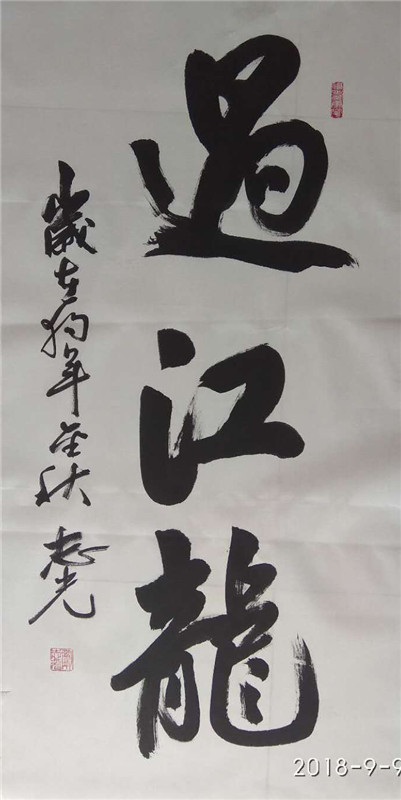 過江龍
歲在狗年金秋 志光
2018-9-9